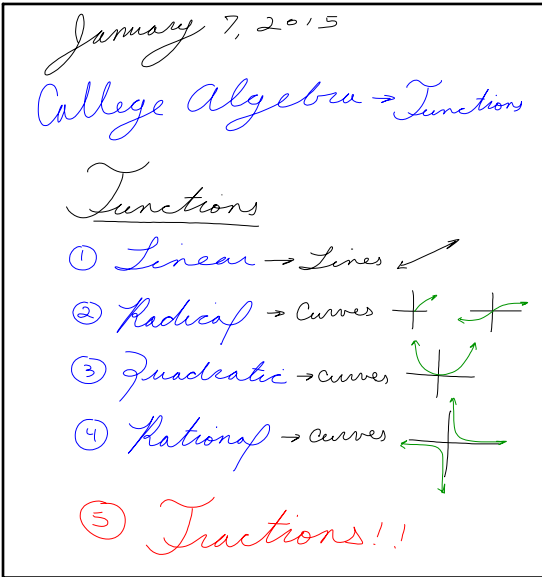 January 7, 2015
College Algebra → Functions
Functions
① Linear → Lines
② Radical → Curves
③ Quadratic → curves
④ Rational → curves
⑤ Fractions!!